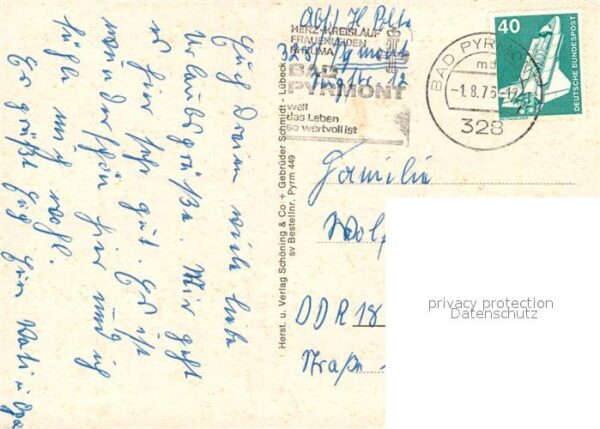 Abs. H. Polte
328 Pyrmont
HERZ-KREISLAUF
FRAUENLEIDEN
RHEUMA
BAD
PYRMONT
weil
das Leben
so wertvoll ist
BAD PYRMONT
-1.8.76-12
328
40
DEUTSCHE BUNDESPOST
Euch Dreien viele liebe
Urlaubsgrüße. Mir geht
es hier sehr gut. Es ist
wunderschön hier und ich
fühle mich wohl.
Es grüßt Euch Euer Vati u. Opa
Herst. u. Verlag Schöning & Co + Gebrüder Schmidt - Lübeck
sv Bestellnr. Pyrm 449
Familie
DDR 18
Straße
privacy protection
Datenschutz